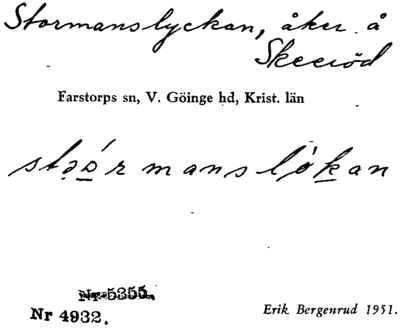 Stormanslyckan, åker å
Skeeröd
Farstorps sn, V. Göinge hd, Krist. län
Nr 5355.
Nr 4932.
Erik Bergenrud 1951.